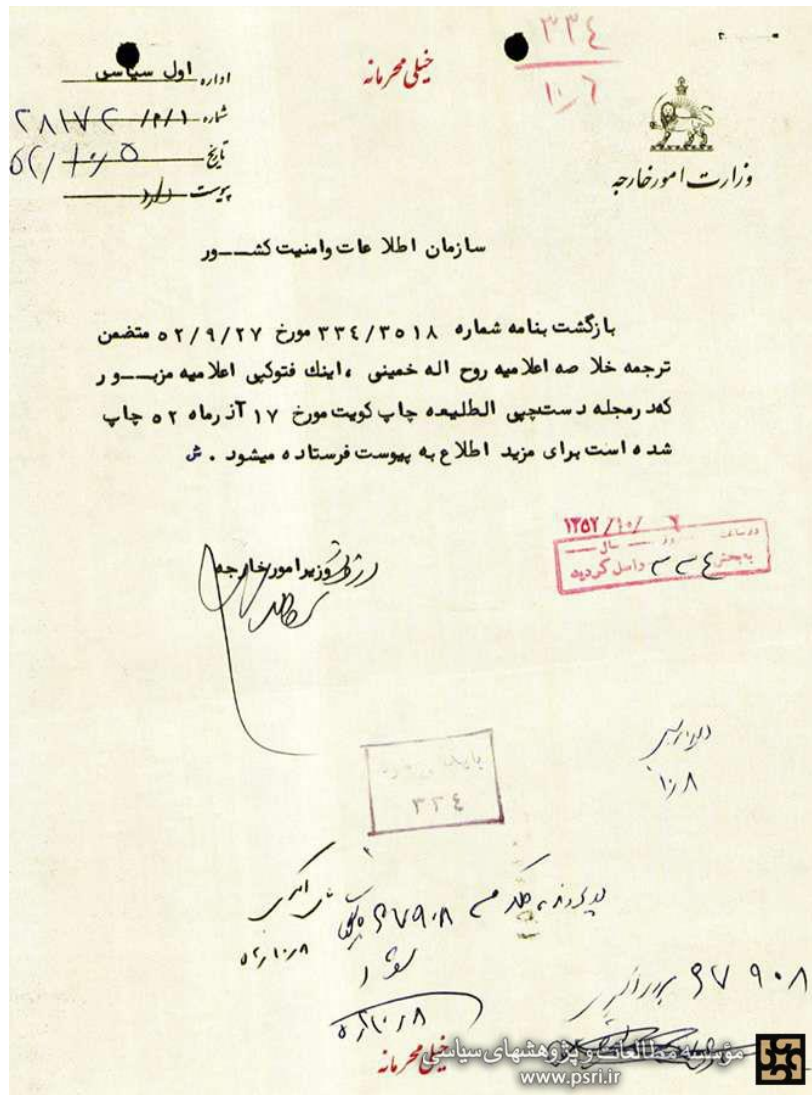 ۳۳۴
۱۰/۶
خیلی محرمانه
وزارت امور خارجه
اداره اول سیاسی
شماره ۲۸۱۷۲ /۲/۱
تاریخ ۵۲/۱۰/۵
پیوست دارد
سازمان اطلاعات وامنیت کشـــور
بازگشت بنامه شماره ۳۳۴/۳۵۱۸ مورخ ۵۲/۹/۲۷ متضمن
ترجمه خلاصه اعلامیه روح اله خمینی ، اینك فتوکپی اعلامیه مزبـــور
که در مجله دستچپی الطلیعه چاپ کویت مورخ ۱۷ آذرماه ۵۲ چاپ
شده است برای مزید اطلاع به پیوست فرستاده میشود . ش
وزیر امور خارجه
۱۳۵۲/۱۰/
به بخش ۳۳۴ واصل گردید
۳۳۴
۱۰/۸
۶۷۹۰۸
شود
۵۲/۱۰/۸
۶۷۹۰۸
خیلی محرمانه
مؤسسه مطالعات و پژوهشهای سیاسی
www.psri.ir